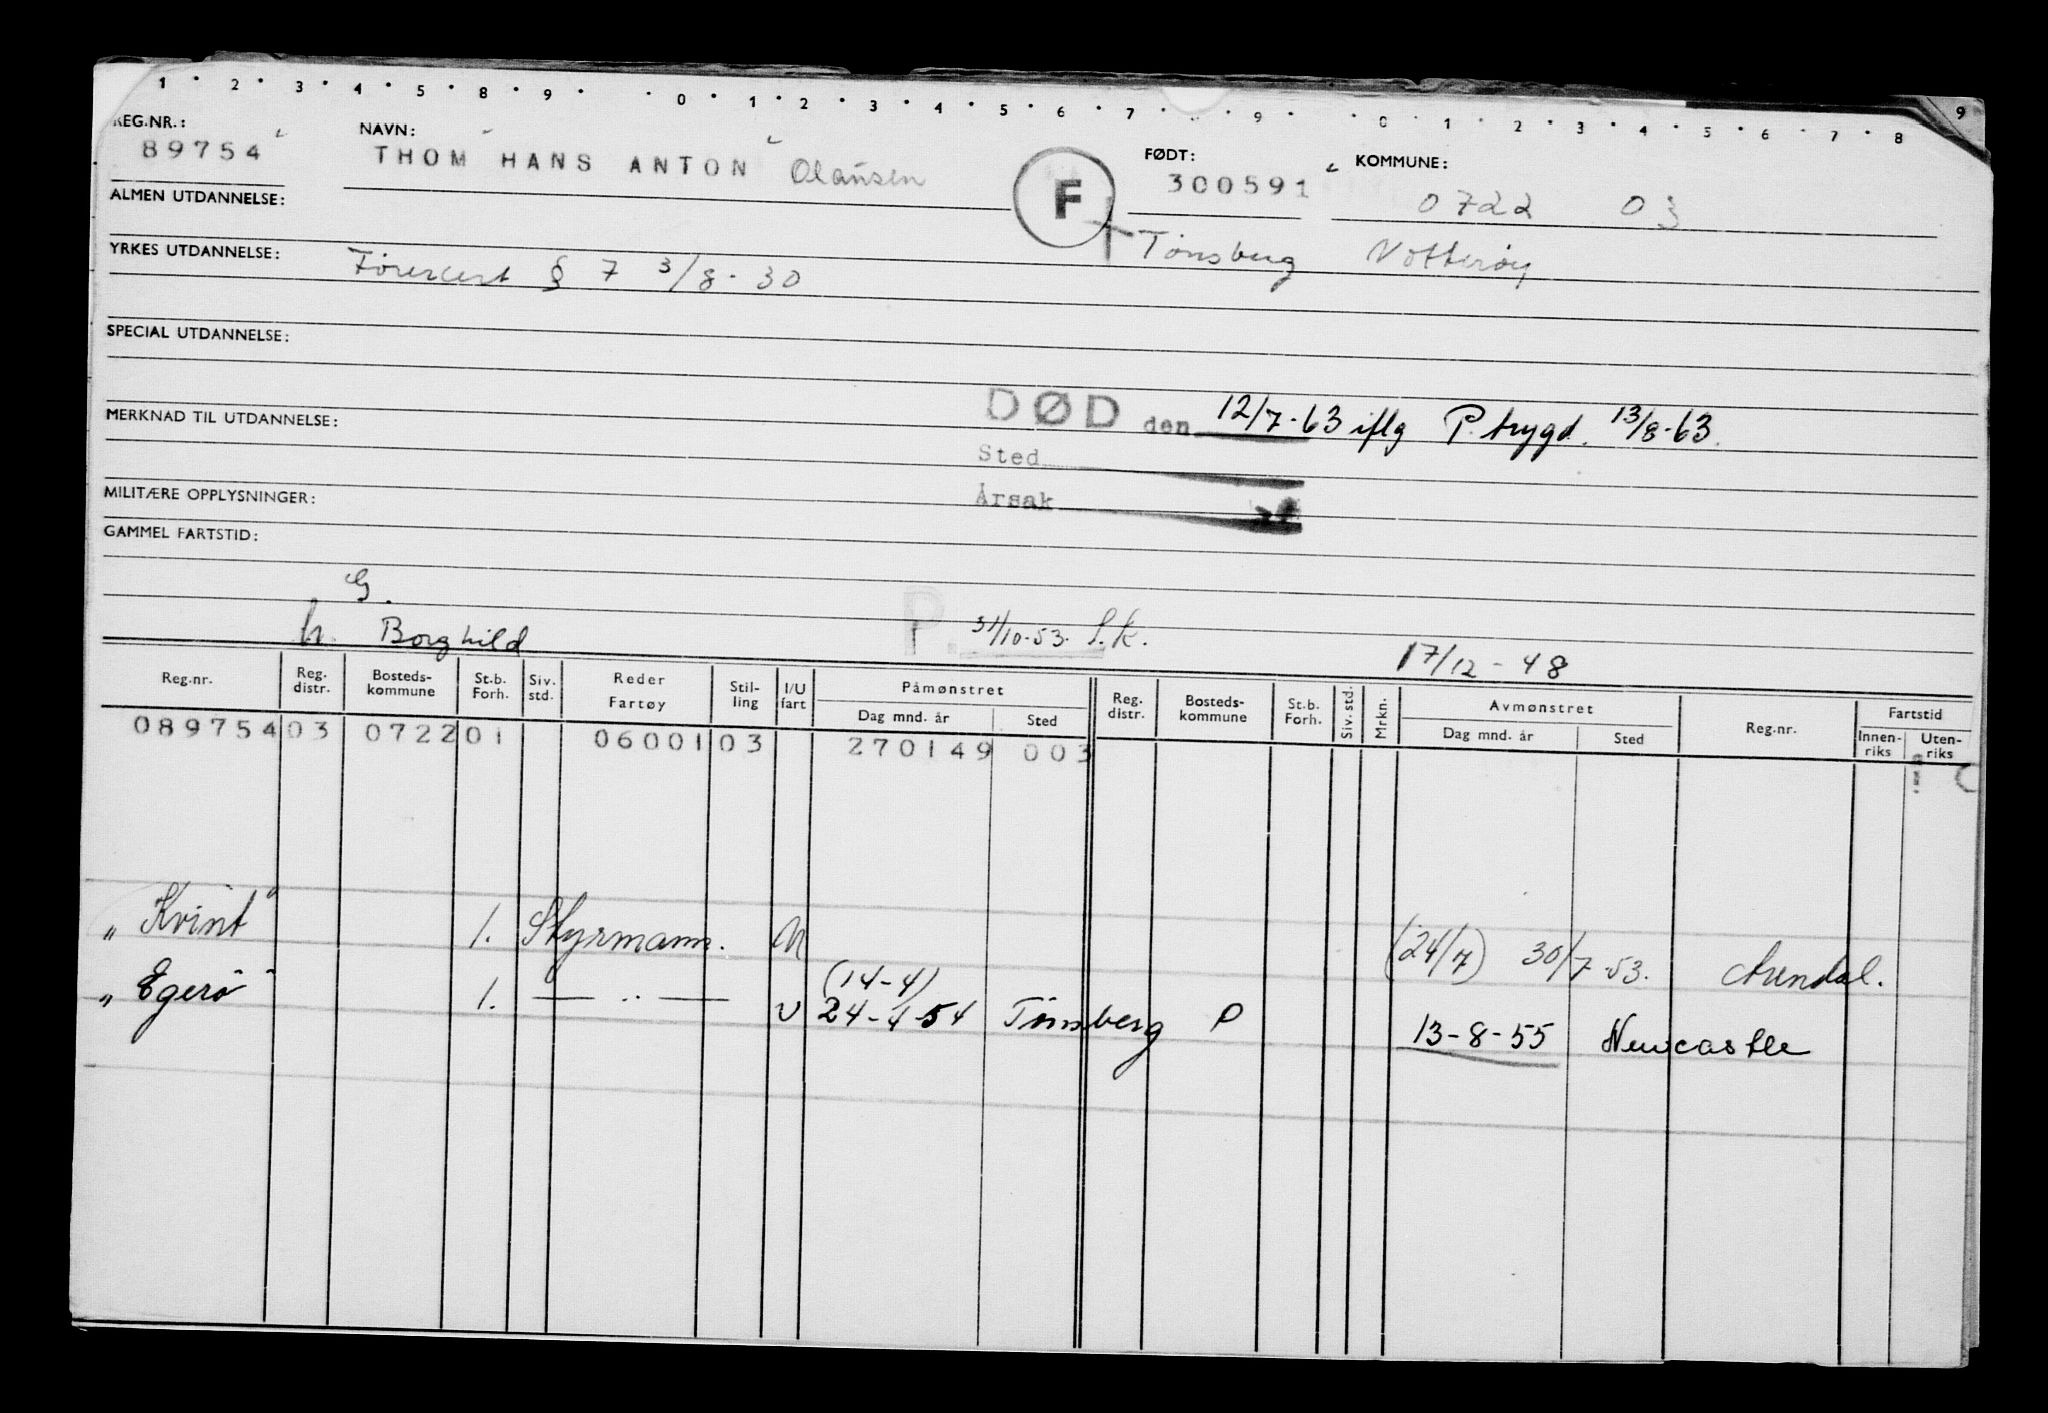 1 · 2 · 3 · 4 · 5 · 8 · 9 · · 0 · 1 · 2 · 3 · 4 · 5 · 6 · 7 · · 9 · · 0 · 1 · 2 · 3 · 4 · 5 · 6 · 7 · 8 9
REG.NR.: NAVN: FØDT: KOMMUNE:
89754 THOM HANS ANTON Olaussen F 300591 0722 03
ALMEN UTDANNELSE:
Tønsberg Nøtterøy
YRKES UTDANNELSE: Førercert § 7 3/8-30
SPECIAL UTDANNELSE:
MERKNAD TIL UTDANNELSE: DØD den 12/7-63 iflg P.trygd. 13/8-63.
Sted
MILITÆRE OPPLYSNINGER: Årsak
GAMMEL FARTSTID:
G.
h. Borghild P. 31/10-53. 17/12-48
Reg.nr. Reg. distr. Bosteds-kommune St.b. Forh. Siv. std. Reder Fartøy Stil-ling I/U fart Påmønstret Dag mnd. år Sted Reg. distr. Bosteds-kommune St.b. Forh. Siv. std. Mrkn. Avmønstret Dag mnd. år Sted Reg.nr. Fartstid Innen-riks Uten-riks
089754 03 0722 01 06001 03 270149 003
"Kvint" 1. Styrmann. (24/7) 30/7-53. Arendal.
(14-4)
"Egerø" 1. — " — U 24-4-54 Tønsberg P 13-8-55 Newcastle